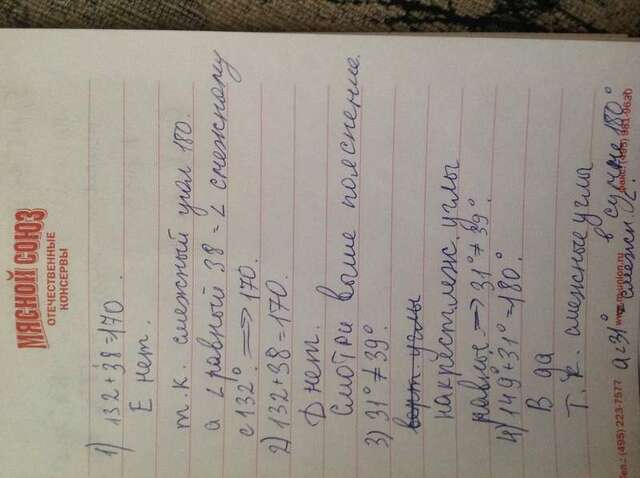 МЯСНОЙ СОЮЗ
ОТЕЧЕСТВЕННЫЕ
КОНСЕРВЫ
1) 132+38=170.
Е нет.
т.к. смежный угол 180.
а ∠ равный 38 = ∠ смежному
с 132° ⟹ 170.
2) 132+38=170.
D нет.
Смотри выше пояснение.
3) 31° ≠ 39°
верт. углы
накрест леж. углы
равные ⟹ 31° ≠ 39°
4) 149°+31°=180°
В да
Т.к. смежные углы
в сумме 180°
а 31° = смежн
Тел.: (495) 223-7577 www.m-union.ru факс: (495) 961-96